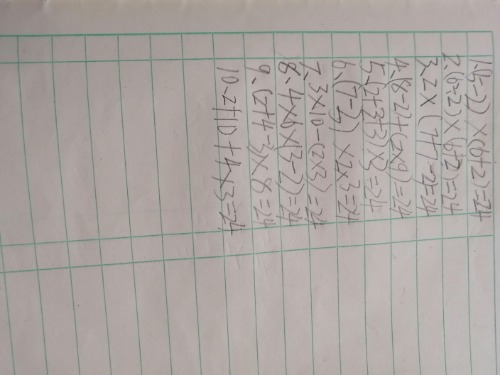 1.(8-2)×(6-2)=24
2.(6-2)×(6÷2)=24
3.2×(7+7-2)=24
4.8-2+(2×9)=24
5.(2+3+3)×3=24
6.(7-3)×2×3=24
7.3×10-(2×3)=24
8.4×6×(3-2)=24
9.(2+4-3)×8=24
10.2+10+4×3=24